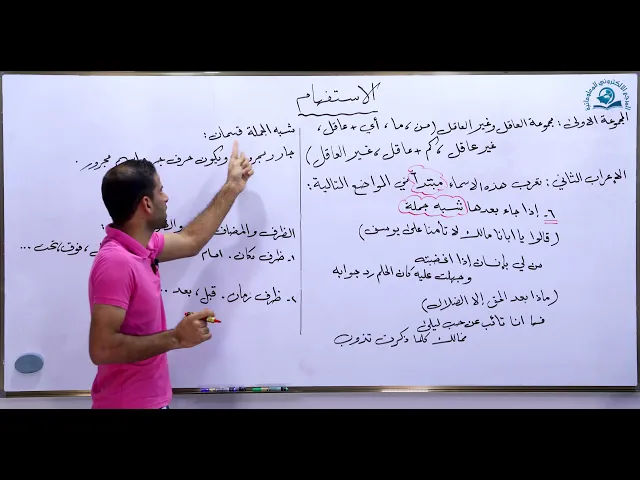 الاستفهام
المجموعة الاولى: مجموعة العاقل وغير العاقل (من، ما، أي + عاقل،
غير عاقل، كم + عاقل، غير العاقل)
الاعراب الثاني: تعرب هذه الاسماء مبتدأ في المواضع التالية:
٦- إذا جاء بعدها شبه جملة
(قالوا يا ابانا مالك لا تأمنا على يوسف)
من لي بإنسان إذا اغضبته
وجهلت عليه كان الحلم رد جوابه
(ماذا بعد الحق إلا الضلال)
فما انا تائب عن حب ليلى
فمالك كلما ذكرت تذوب
شبه الجملة قسمان:
جار ومجرور ويكون حرف جر مجرور.
الظرف والمضاف
١- ظرف مكان. امام فوق، تحت ...
٢- ظرف زمان. قبل، بعد ...